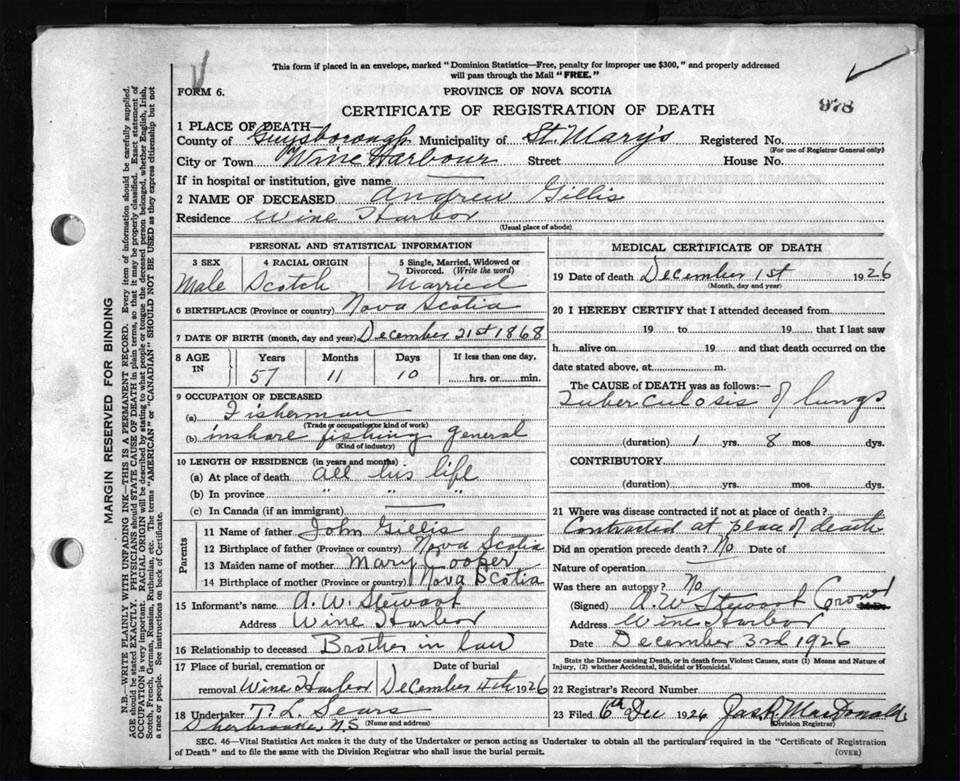 This form if placed in an envelope, marked "Dominion Statistics—Free, penalty for improper use $300," and properly addressed
will pass through the Mail "FREE."
FORM 6.
PROVINCE OF NOVA SCOTIA
CERTIFICATE OF REGISTRATION OF DEATH
978
1 PLACE OF DEATH—
County of Guysborough Municipality of St. Mary's Registered No.
(For use of Registrar General only)
City or Town Wine Harbour Street House No.
If in hospital or institution, give name
2 NAME OF DECEASED Andrew Gillis
Residence Wine Harbor
(Usual place of abode)
PERSONAL AND STATISTICAL INFORMATION
3 SEX 4 RACIAL ORIGIN 5 Single, Married, Widowed or Divorced. (Write the word)
Male Scotch Married
6 BIRTHPLACE (Province or country) Nova Scotia
7 DATE OF BIRTH (month, day and year) December 21st 1868
8 AGE IN Years Months Days If less than one day,
57 11 10 hrs. or min.
9 OCCUPATION OF DECEASED
(a) Fisherman
(Trade or occupation or kind of work)
(b) inshore fishing general
(Kind of industry)
10 LENGTH OF RESIDENCE (in years and months)
(a) At place of death all his life
(b) In province " " "
(c) In Canada (if an immigrant)
Parents
11 Name of father John Gillis
12 Birthplace of father (Province or country) Nova Scotia
13 Maiden name of mother Mary Cooper
14 Birthplace of mother (Province or country) Nova Scotia
15 Informant's name A. W. Stewart
Address Wine Harbor
16 Relationship to deceased Brother in law
17 Place of burial, cremation or Date of burial
removal Wine Harbor December 4th 1926
18 Undertaker T. L. Sears
(Name and address)
Sherbrooke N.S
MEDICAL CERTIFICATE OF DEATH
19 Date of death December 1st 1926
(Month, day and year)
20 I HEREBY CERTIFY that I attended deceased from
19 to 19 that I last saw
h alive on 19 and that death occurred on the
date stated above, at m.
The CAUSE of DEATH was as follows:—
Tuberculosis of lungs
(duration) 1 yrs. 8 mos. dys.
CONTRIBUTORY
(duration) yrs. mos. dys.
21 Where was disease contracted if not at place of death?
Contracted at place of death
Did an operation precede death? No Date of
Nature of operation
Was there an autopsy? No
(Signed) A. W. Stewart M.D.
Address Wine Harbor
Date December 3rd 1926
State the Disease causing Death, or in death from Violent Causes, state (1) Means and Nature of
Injury, (2) whether Accidental, Suicidal or Homicidal.
22 Registrar's Record Number
23 Filed 6th Dec 1926 Jas R. MacDonald
Division Registrar
SEC. 46—Vital Statistics Act makes it the duty of the Undertaker or person acting as Undertaker to obtain all the particulars required in the "Certificate of Registration
of Death" and to file the same with the Division Registrar who shall issue the burial permit. (OVER)
MARGIN RESERVED FOR BINDING
N.B.—WRITE PLAINLY WITH UNFADING INK—THIS IS A PERMANENT RECORD. Every item of information should be carefully supplied.
AGE should be stated EXACTLY. PHYSICIANS should STATE CAUSE OF DEATH in plain terms, so that it may be properly classified. Exact statement of
OCCUPATION is very important. RACIAL ORIGIN will be described by stating what people or tongue the deceased person belonged, whether English, Irish,
Scotch, French, German, Russian, Ruthenian, etc. The terms "AMERICAN" or "CANADIAN" SHOULD NOT BE USED as they express citizenship but not
a race or people. See instructions on back of Certificate.